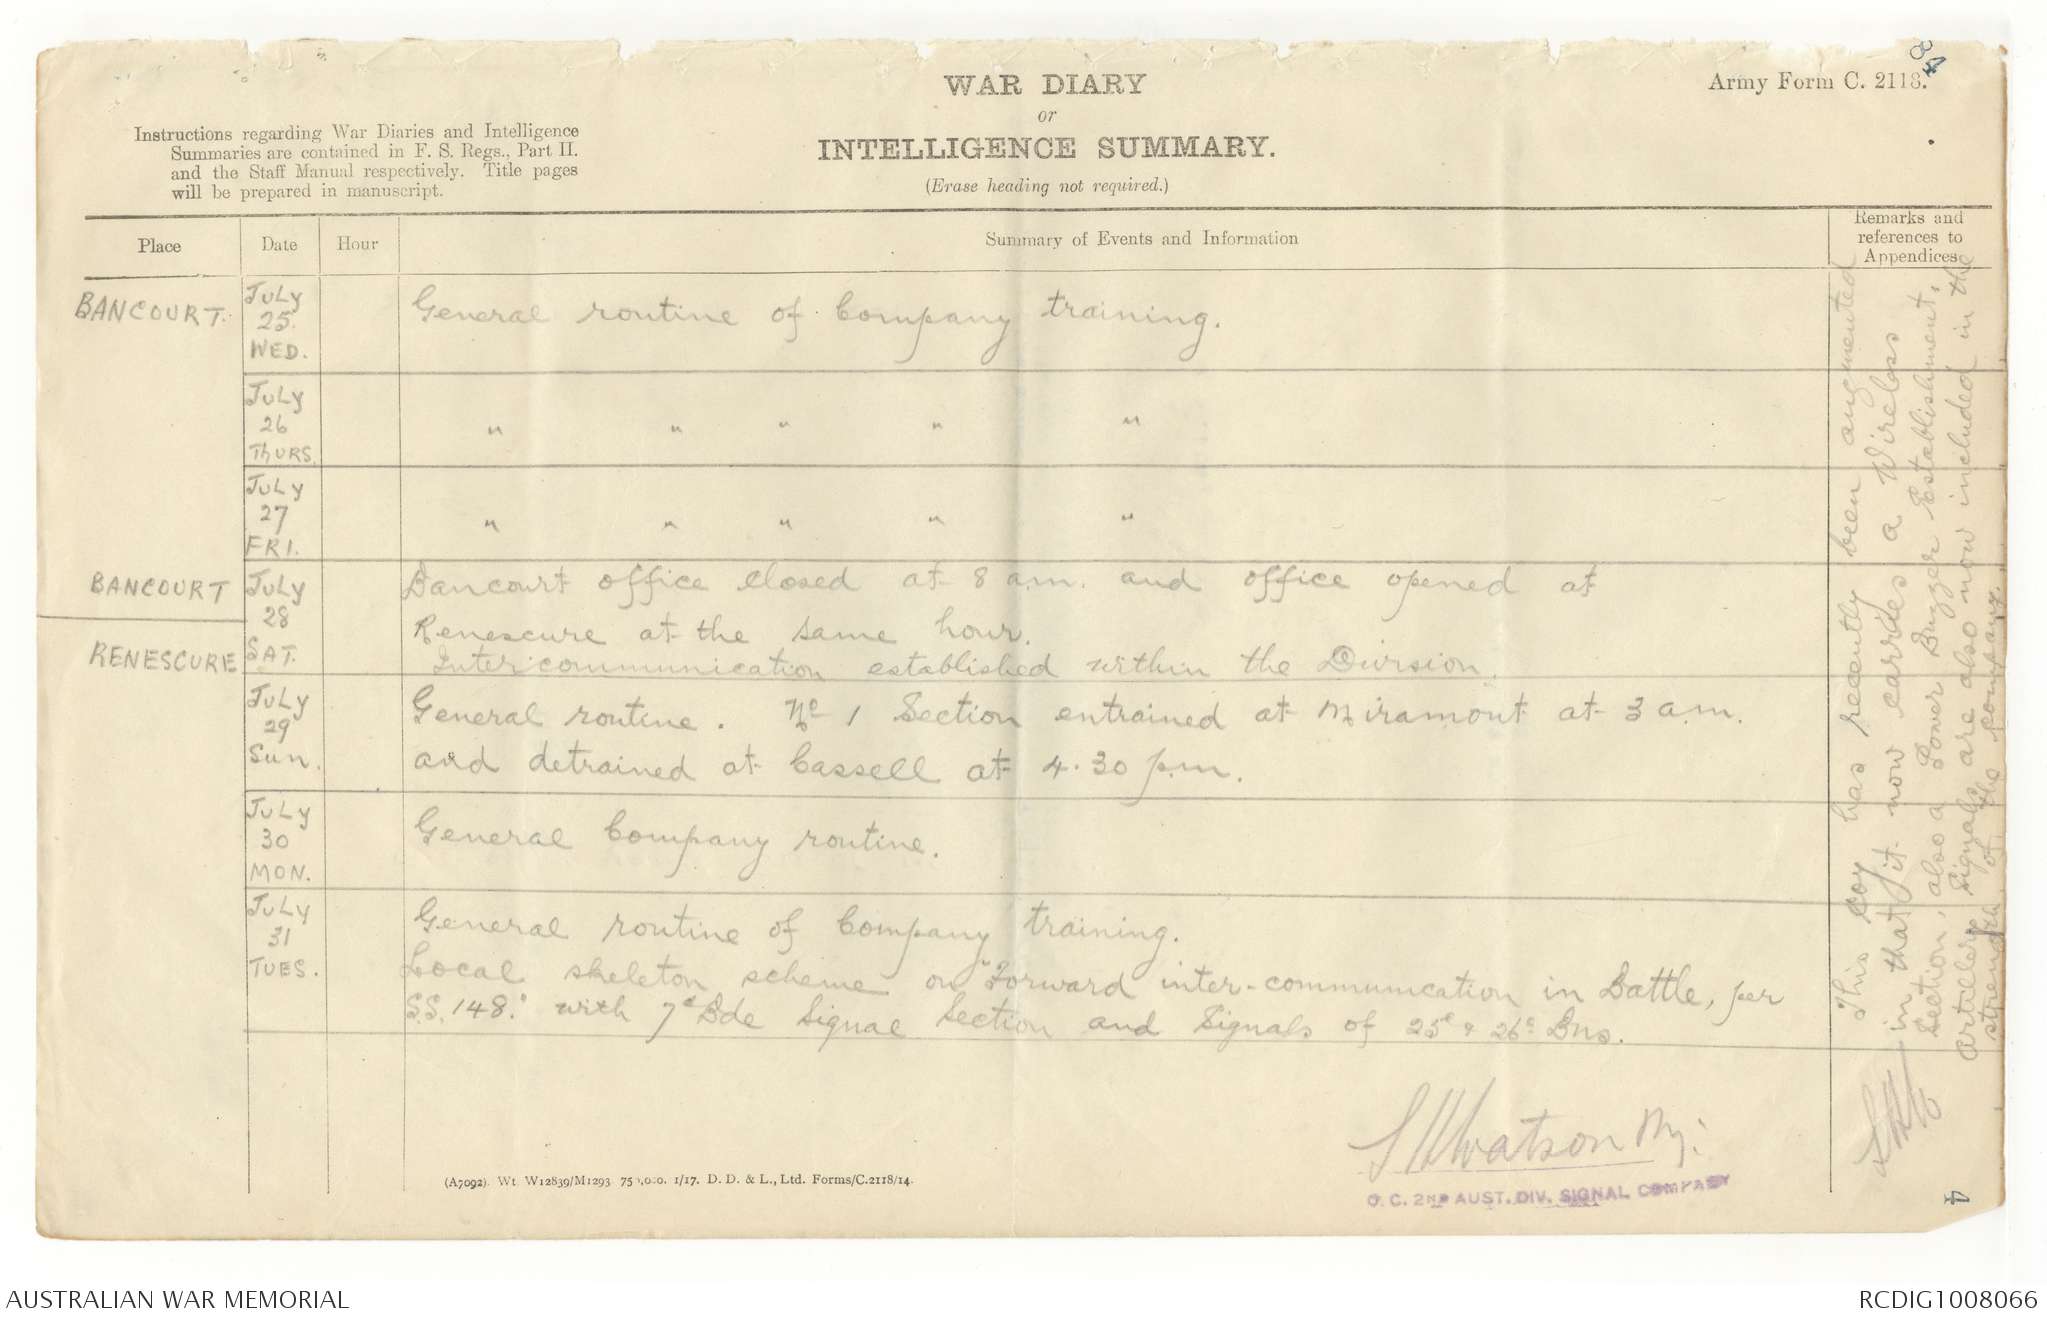 84
WAR DIARY
or
INTELLIGENCE SUMMARY.
(Erase heading not required.)
Army Form C. 2118.
Instructions regarding War Diaries and Intelligence
Summaries are contained in F. S. Regs., Part II.
and the Staff Manual respectively. Title pages
will be prepared in manuscript.
Place
Date
Hour
Summary of Events and Information
Remarks and
references to
Appendices
BANCOURT.
JULY
25.
WED.
General routine of Company training.
JULY
26
THURS.
" " " " "
JULY
27
FRI.
" " " " "
BANCOURT
RENESCURE
JULY
28
SAT.
Bancourt office closed at 8 a.m. and office opened at
Renescure at the same hour.
Intercommunication established within the Division.
JULY
29
SUN.
General routine. No 1 Section entrained at Miramont at 3 a.m.
and detrained at Cassell at 4.30 p.m.
JULY
30
MON.
General Company routine.
JULY
31
TUES.
General routine of Company training.
Local skeleton scheme on "Forward inter-communication in Battle, per
S.S. 148." with 7th Bde Signal Section and Signals of 25th & 26th Bns.
This Coy has recently been augmented
in that it now carries a Wireless
Section, also a Power Buzzer Establishment,
Artillery Signals are also now included in the
strength of the company.
Watson Mj:
O. C. 2ND AUST. DIV. SIGNAL COMPANY
4
(A7092). Wt W12839/M1293 750,000. 1/17. D. D. & L., Ltd. Forms/C.2118/14.
AUSTRALIAN WAR MEMORIAL
RCDIG1008066